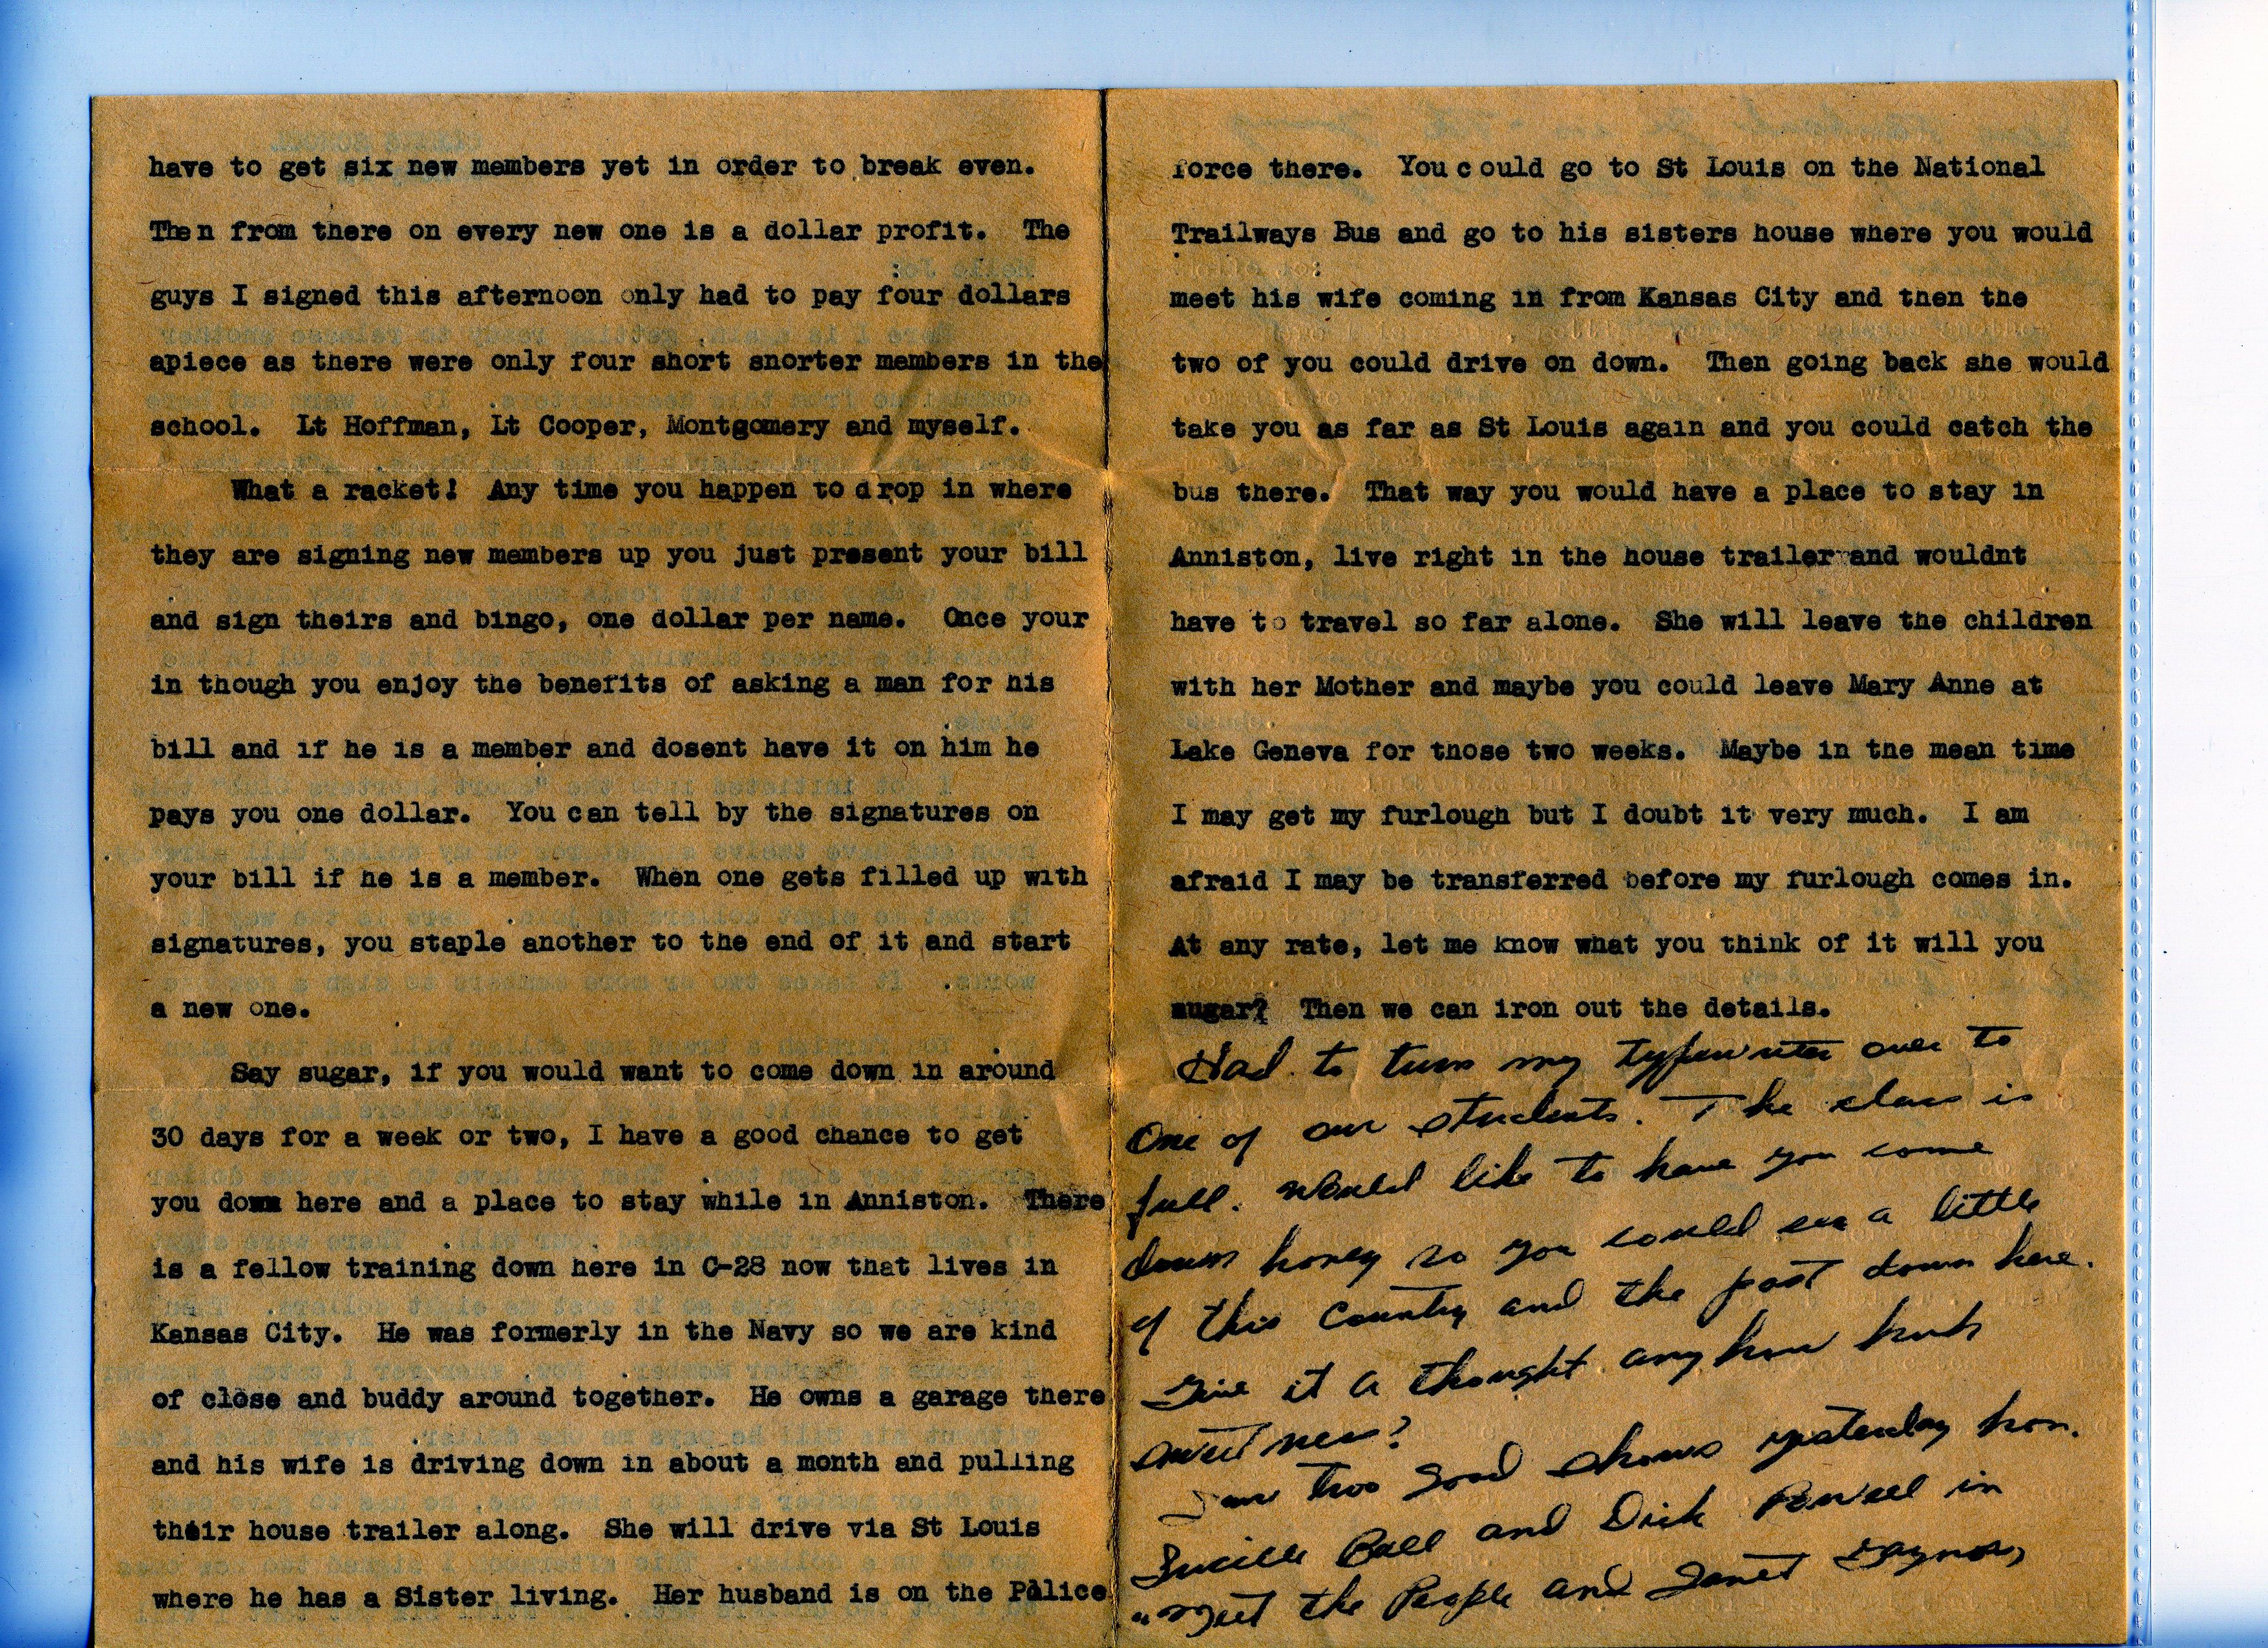 have to get six new members yet in order to break even.
Then from there on every new one is a dollar profit. The
guys I signed this afternoon only had to pay four dollars
apiece as there were only four short snorter members in the
school. Lt Hoffman, Lt Cooper, Montgomery and myself.
What a racket! Any time you happen to drop in where
they are signing new members up you just present your bill
and sign theirs and bingo, one dollar per name. Once your
in though you enjoy the benefits of asking a man for his
bill and if he is a member and dosent have it on him he
pays you one dollar. You can tell by the signatures on
your bill if he is a member. When one gets filled up with
signatures, you staple another to the end of it and start
a new one.
Say sugar, if you would want to come down in around
30 days for a week or two, I have a good chance to get
you down here and a place to stay while in Anniston. There
is a fellow training down here in C-28 now that lives in
Kansas City. He was formerly in the Navy so we are kind
of close and buddy around together. He owns a garage there
and his wife is driving down in about a month and pulling
their house trailer along. She will drive via St Louis
where he has a Sister living. Her husband is on the Police
force there. You could go to St Louis on the National
Trailways Bus and go to his sisters house where you would
meet his wife coming in from Kansas City and then the
two of you could drive on down. Then going back she would
take you as far as St Louis again and you could catch the
bus there. That way you would have a place to stay in
Anniston, live right in the house trailer and wouldnt
have to travel so far alone. She will leave the children
with her Mother and maybe you could leave Mary Anne at
Lake Geneva for those two weeks. Maybe in the mean time
I may get my furlough but I doubt it very much. I am
afraid I may be transferred before my furlough comes in.
At any rate, let me know what you think of it will you
sugar? Then we can iron out the details.
Had to turn my typewriter over to
one of our students. The class is
full. Would like to have you come
down honey so you could see a little
of this country and the post down here.
Give it a thought anyhow huh
sweetness?
Saw two good shows yesterday hon.
Lucille Ball and Dick Powell in
"Meet the People and Janet Gaynor,